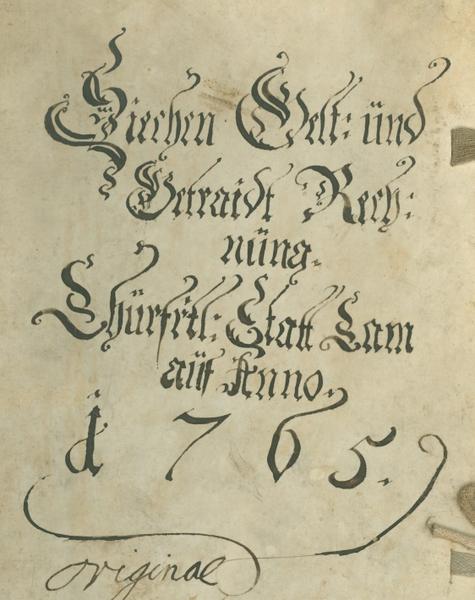 Siechen Gelt: ünd
Getraidt Rech:
nüng.
Chürfrtl: Statt Cam
aüf Anno.
1765.
original